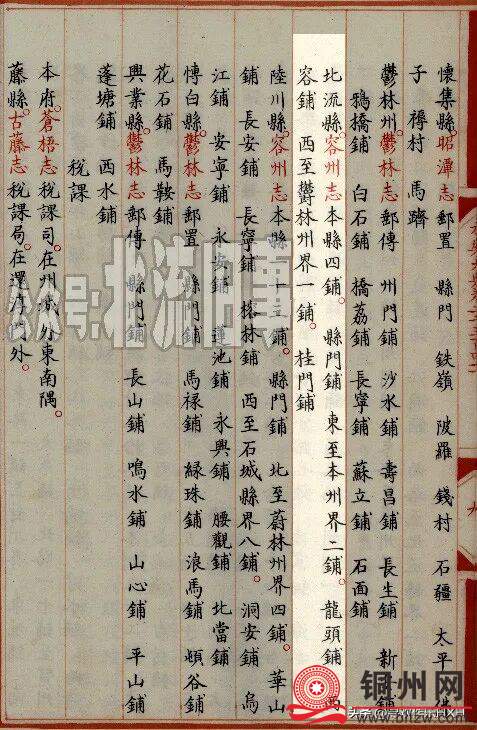 懷集縣。昭潭志郵置 縣門 鉄嶺 陂羅 錢村 石疆 太平 佛
子 褥村 馬躋
鬱林州。鬱林志郵傳 州門鋪 沙水鋪 壽昌鋪 長生鋪 新 鋪
鴉橋鋪 白石鋪 橋荔鋪 長寧鋪 蘇立鋪 石面鋪
北流縣。容州志本縣四鋪。縣門鋪 東至本州界二鋪。龍頭鋪 西
容鋪 西至欝林州界一鋪。桂門鋪
陸川縣。容州志本縣 十二鋪。縣門鋪 北至蔚林州界四鋪。華山
鋪 長安鋪 長寧鋪 榕林鋪 西至石城縣界八鋪。洞安鋪 烏
江鋪 安寧鋪 永安鋪 蓮池鋪 永興鋪 腰觀鋪 北當鋪
慱白縣。鬱林志郵置 縣門鋪 馬禄鋪 緑珠鋪 浪馬鋪 頓谷鋪
花石鋪 馬鞍鋪
興業縣。鬱林志郵傳 縣門鋪 長山鋪 鳴水鋪 山心鋪 平山鋪
蓬塘鋪 西水鋪
稅課
本府。蒼梧志稅課司。在州城外東南隅。
藤縣。古藤志稅課局。在 門外。
公众号:北流旧事
铜州网
www.bllzw.com
头条